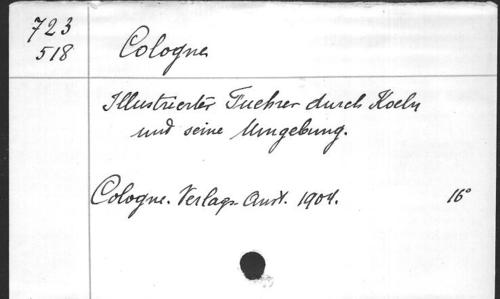 723
518
Cologne
Illustrierter Fuehrer durch Koeln
und seine Umgebung.
Cologne. Verlags Anst. 1904. 16°